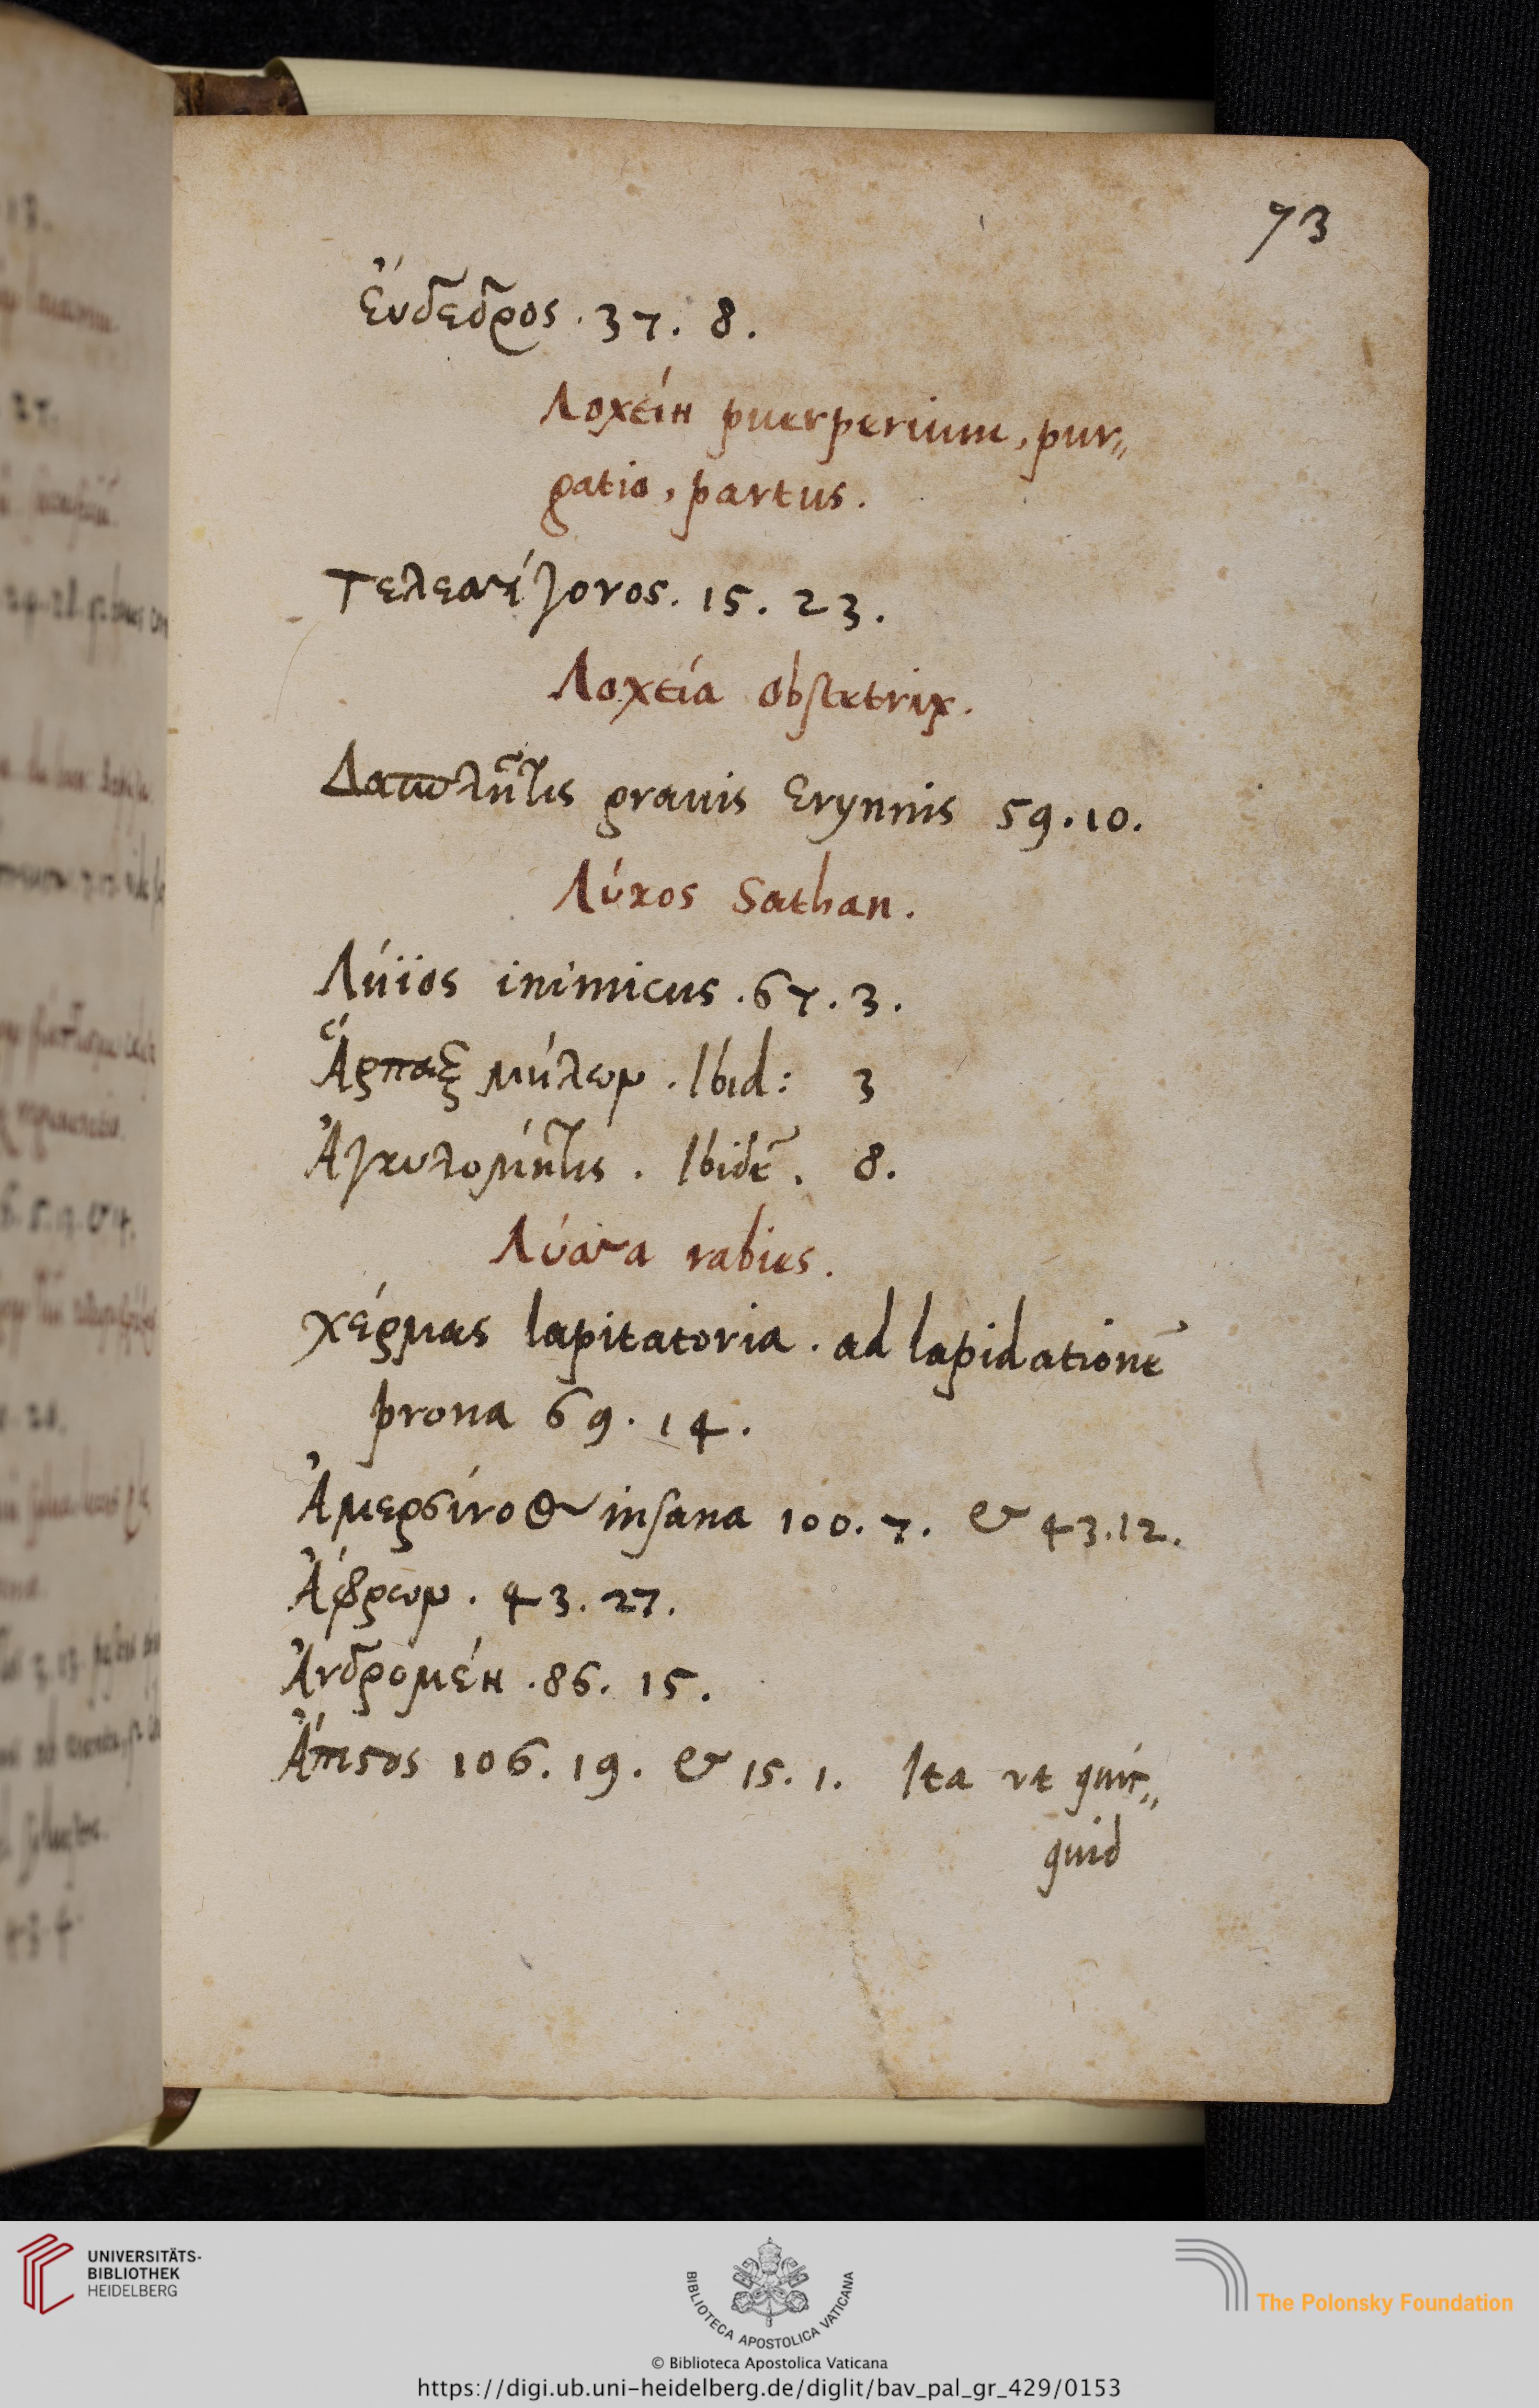 73
Εὔδεδρος . 37 . 8 .
Λοχείη puerperium, pur„
gatio, partus .
Τελεσσίγονος . 15 . 23 .
Λοχεία obstetrix .
Δασπλῆτις grauis Erynnis 59 . 10 .
Λύκος Sathan .
Λήϊος inimicus . 67 . 3 .
Ἅρπαξ μήλων . Ibid : 3
Ἀγκυλομήτις . Ibidē . 8 .
Λύσσα rabies .
χέρμας lapitatoria . ad lapidationē
prona 69 . 14 .
Ἀμερσίνοος insana 100 . 7 . & 43 . 12 .
Ἄφρων . 43 . 27 .
Ἀνδρομέη . 86 . 15 .
Ἄπιστος 106 . 19 . & 15 . 1 . Ita ut quic„
quid
UNIVERSITÄTS-
BIBLIOTHEK
HEIDELBERG
BIBLIOTECA APOSTOLICA VATICANA
The Polonsky Foundation
© Biblioteca Apostolica Vaticana
https://digi.ub.uni-heidelberg.de/diglit/bav_pal_gr_429/0153